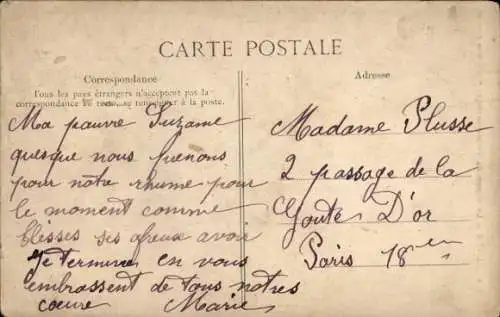 CARTE POSTALE
Correspondance
Tous les pays étrangers n'acceptent pas la
correspondance au à la poste.
Ma pauvre Suzame
quesque nous prenons
pour notre rhume pour
le moment comme
blesses ses afreux avoir
Je termine en vous
embrassent de tous notres
cœure Marie
Adresse
Madame Plusse
2 passage de la
Goute D'or
Paris 18em